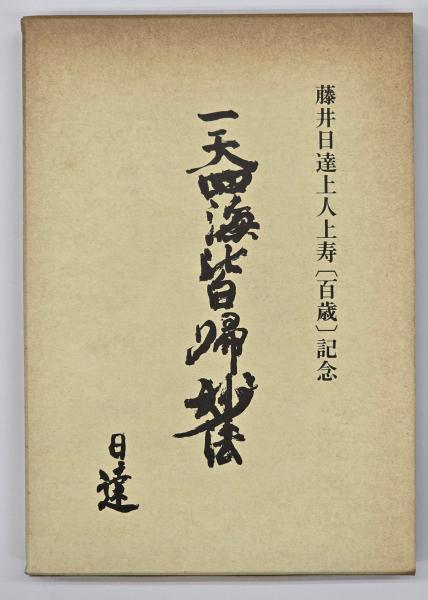 藤井日達上人上寿〔百歳〕記念
一天四海皆帰妙法
日達